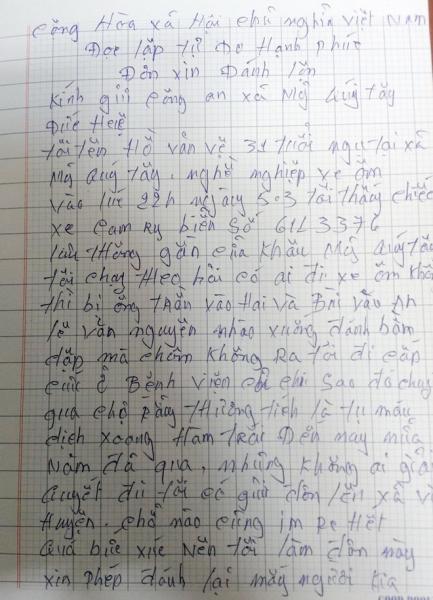 Cộng Hòa xã Hội chủ nghĩa việt Nam
Đọc lập tự Do Hạnh phúc
Đơn xin Đánh lộn
Kính gửi công an xã Mỹ Quý tây
Đức Huệ
tôi tên Hồ văn vẽ 31 tuổi ngụ tại xã
Mỹ Quý tây. nghề nghiệp xe ôm
vào lúc 22h ngày 5.3 tôi thấy chiếc
xe camry biển số 61L 3376
lưu thông gần cửa khẩu Mỹ Quý tây
tôi chạy theo hỏi có ai đi xe ôm không
thì bị ông trần vào Hai và Bùi văn An
lê văn nguyên nhào xuống đánh bầm
dập mà chồm không Ra tôi đi cấp
cứu ở Bệnh viện sao đó chạy
qua chợ Rẫy thương tích là tụ máu
dịch xoang Hàm trái Đến nay nữa
Năm đã qua, nhưng không ai giải
quyết dù tôi có gửi đơn lên xã và
Huyện. chỗ nào cũng im Re Hết
Quá bức xúc Nên tôi làm đơn này
xin phép đánh lại mấy người kia